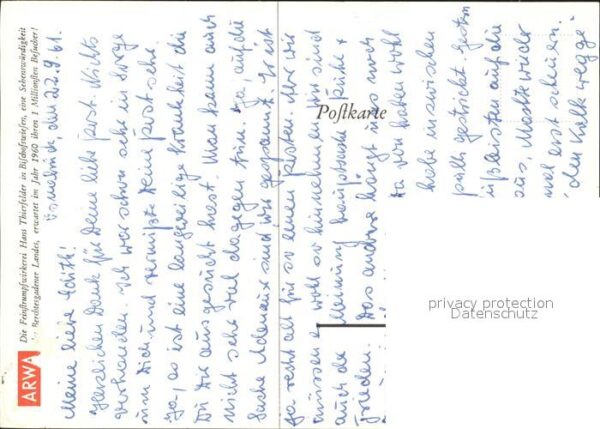 Die Feinstrumpfwirkerei Hans Thierfelder in Bischofswiesen, eine Sehenswürdigkeit
des Berchtesgadener Landes, erwartet im Jahr 1960 ihren 1 Millionsten Besucher!
ARWA
Postkarte
den 22.9.61.
Meine liebe Edith!
Herzlichen Dank für Deine liebe Post. Nichts
vorhanden. Ich war schon sehr in Sorge
um Dich und vermißte Deine Post sehr.
Ja, es ist eine langweilige Krankheit die
Du Dir ausgesucht hast. Man kann auch
nicht sehr viel dagegen tun. Ja, auf die
Sache Adenauer sind wir gespannt. Er ist
ja recht alt für so einen Posten. Aber wir
müssen wohl so hinnehmen. Wir sind
auch der Meinung Hauptsache Ruhe +
Frieden. Das andere hängt uns noch
wohl
habe inzwischen
gestrickt. Gestern
auf die
aus, Mochte wieder
mal erst scheuen.
den Kalk wegge
privacy protection
Datenschutz